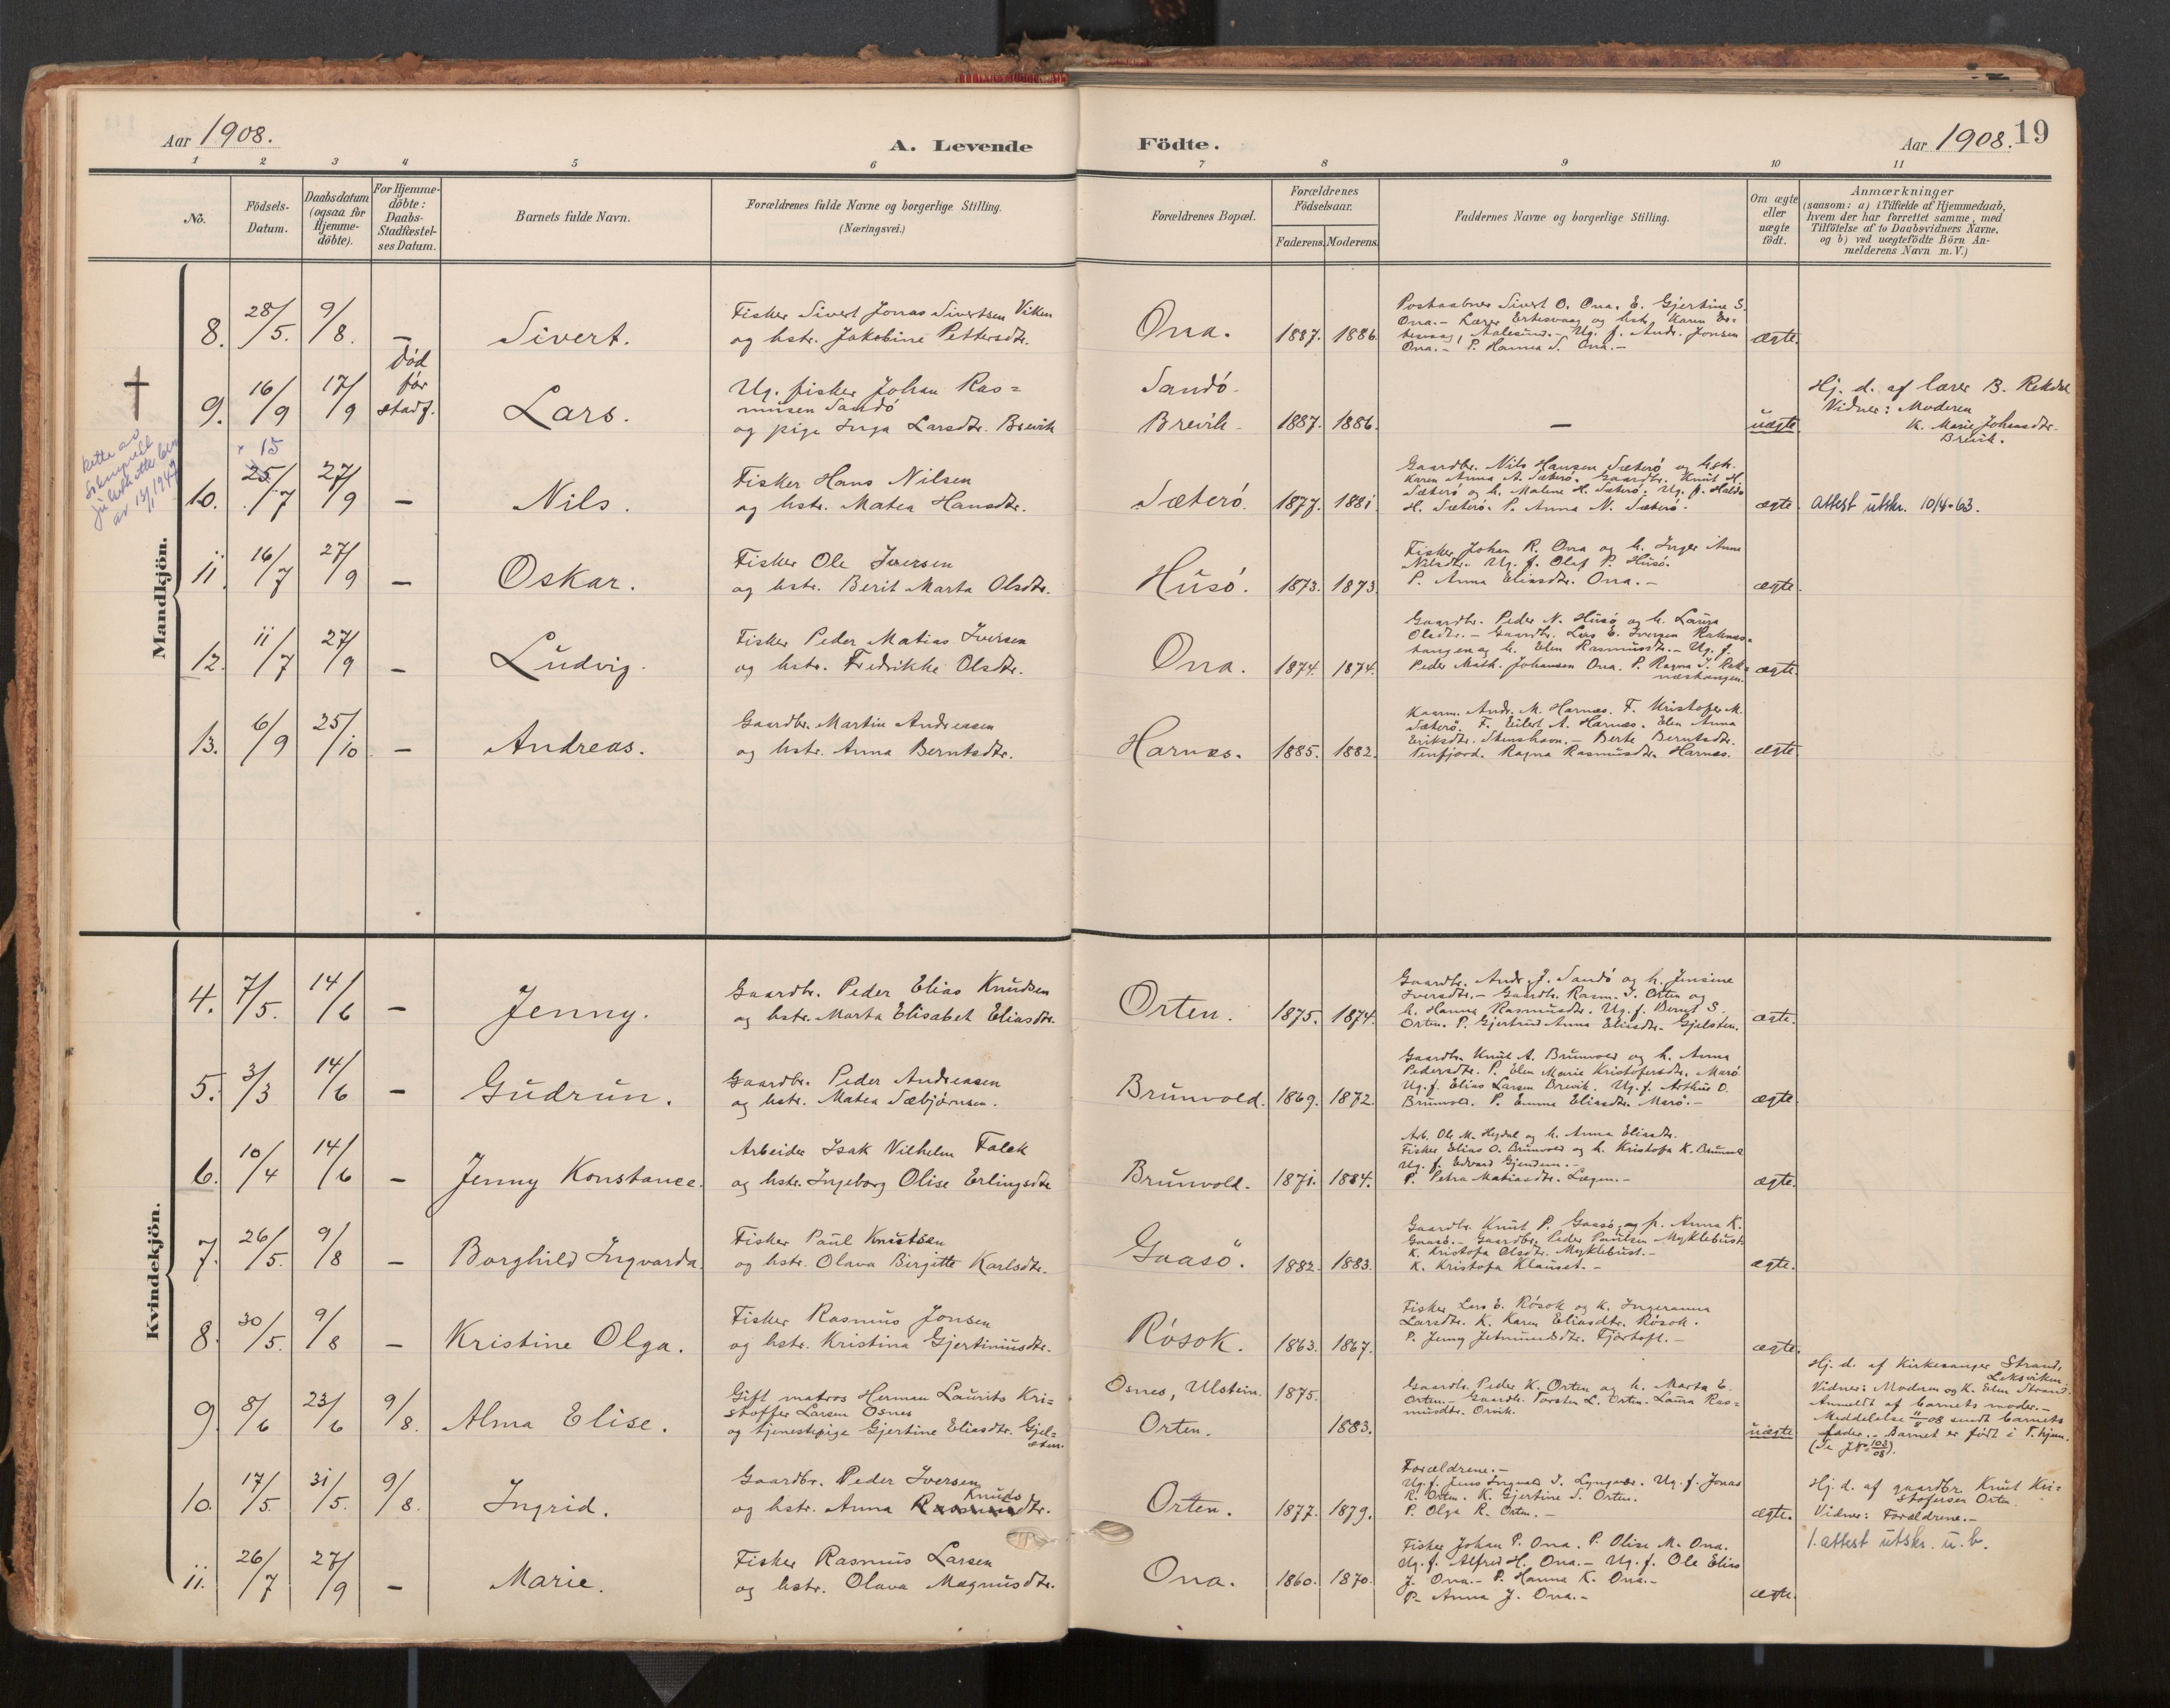 Aar 1908.
A. Levende
Födte.
Aar 1908. 19
1 2 3 4 5 6 7 8 9 10 11
No.
Födsels-
Datum.
Daabsdatum
(ogsaa for
Hjemme-
döbte).
For Hjemme-
döbte:
Daabs-
Stadfæstel-
ses Datum.
Barnets fulde Navn.
Forældrenes fulde Navne og borgerlige Stilling.
(Næringsvei.)
Forældrenes Bopæl.
Forældrenes
Födselsaar.
Faderens. Moderens.
Faddernes Navne og borgerlige Stilling.
Om ægte
eller
uægte
födt.
Anmærkninger
(saasom: a) i Tilfælde af Hjemmedaab,
hvem der har forrettet samme, med
Tilföielse af to Daabsvidners Navne,
og b) ved uægtefödte Börn An-
melderens Navn m. V.)
Mandkjön.
8. 28/5. 9/8. – Sivert.
Fisker Sivert Jonas Sivertsen Viken
og hstr. Jakobine Pettersdtr.
Ona. 1887. 1886.
Postaabner Sivert O. Ona. E. Gjertine S.
Ona. – Lærer Ertesvaag og hstr. Karen Er-
tesvaag, Aalesund. – Ug. f. Andr. Jonsen
Ona. – P. Hanna S. Ona. –
ægte.
9. 16/9 17/9
död
før
stadf.
Lars.
Ug. fisker Johan Ras=
musen Sandö
og pige Inga Larsdtr. Brevik
Sandö.
Brevik. 1887. 1886.
–
uægte.
Hj. d. af lærer B. Rekdal
Vidner: Moderen
K. Marie Johansdtr.
Brevik.
10. × 15
25/7 27/9 – Nils.
Fisker Hans Nilsen
og hstr. Matea Hansdtr.
Sæterö. 1877. 1881.
Gaardbr. Nils Hansen Sæterö og hstr.
Karen Anna A. Sæterö. Gaardbr. Knut H.
Sæterö og h. Malene H. Sæterö. Ug. f.
H. Sæterö. P. Anna N. Sæterö.
ægte. Attest utskr. 10/4-63.
11. 16/7 27/9 – Oskar.
Fisker Ole Iversen
og hstr. Berit Marta Olsdtr.
Husö. 1873. 1873.
Fisker Johan R. Ona og h. Inger Anna
Nilsdtr. Ug. f. Olaf P. Husö.
P. Anna Eliasdtr. Ona. –
ægte.
12. 11/7 27/9 – Ludvig.
Fisker Peder Matias Iversen
og hstr. Fredrikke Olsdtr.
Ona. 1874. 1874.
Gaardbr. Peder N. Husö og h. Laura
Olsdtr. – Gaardbr. Lars E. Iversen Raknæs-
tangen og h. Elen Rasmusdtr. – Ug. f.
Peder Math. Johansen Ona. P. Ragna I. Rak-
næstangen.
ægte.
13. 6/9 25/10 – Andreas.
Gaardbr. Martin Andreasen
og hstr. Anna Berntsdtr.
Harnæs. 1885. 1882.
Andr. M. Harnæs. F. Kristofer M.
Sæterö. F. Eilert A. Harnæs. Elen Anna
Eriksdtr. Stenshavn. – Berte Berntsdtr.
Tenfjord. Ragna Rasmusdtr. Harnæs.
ægte.
Kvindekjön.
4. 7/5. 14/6 – Jenny.
Gaardbr. Peder Elias Knudsen
og hstr. Marta Elisabet Eliasdtr.
Orten. 1875. 1874.
Gaardbr. Andr. J. Sandö og h. Jensine
Iversdtr. – Gaardbr. Rasm. I. Orten og
h. Hanna Rasmusdtr. Ug. f. Bernt S.
Orten. P. Gjertrud Anna Eliasdtr. Gjelsten.
ægte.
5. 3/3 14/6 – Gudrun.
Gaardbr. Peder Andreasen
og hstr. Matea Sæbjörnsen.
Brunvold. 1869. 1872.
Gaardbr. Knut A. Brunvold og h. Anna
Pedersdtr. P. Elen Marie Kristofersdtr. Marö.
Ug. f. Elias Larsen Brevik. Ug. f. Arthur O.
Brunvold. P. Emma Eliasdtr. Marö. –
ægte.
6. 10/4 14/6 – Jenny Konstance.
Arbeider Isak Vilhelm Falck
og hstr. Ingeborg Olise Erlingsdtr.
Brunvold. 1871. 1884.
Arb. Ole M. Hegdal og h. Anna Eliasdtr.
Fisker Elias O. Brunvold og h. Kristofa K. Brunvold
Ug. f. Edvard Gjendem. –
P. Petra Matiasdtr. Lægen. –
ægte.
7. 26/5. 9/8 – Borghild Ingvarda.
Fisker Paul Knutsen
og hstr. Olava Birgitte Karlsdtr.
Gaasö. 1882. 1883.
Gaardbr. Knut P. Gaasö og p. Anna K.
Gaasö. – Gaardbr. Peder Paulsen Myklebust.
K. Kristofa Olsdtr. Myklebust. –
K. Kristofa Klauset. –
ægte.
8. 30/5. 9/8 – Kristine Olga.
Fisker Rasmus Jonsen
og hstr. Kristina Gjertiniusdtr.
Rösok. 1863. 1867.
Fisker Lars E. Rösok og K. Ingeranna
Larsdtr. K. Karen Eliasdtr. Rösok.
P. Jenny Jetmundsdtr. Fjörtoft. –
ægte.
9. 8/6 23/6 9/8. Alma Elise.
Gift matros Herman Laurits Kri=
stoffer Larsen Osnes
og tjenestepige Gjertine Eliasdtr. Gjel=
sten.
Osnes, Ulstein. 1875.
Orten. 1883.
Gaardbr. Peder K. Orten og h. Marta E.
Orten. – Gaardbr. Torsten L. Orten. Laura Ras=
musdtr. Orvik.
uægte
Hj. d. af Kirkesanger Strand,
Leksviken.
Vidner: Moderen og K. Elen Strand.
Anmeldt af barnets moder. –
Meddelelse 11/8 08 sendt barnets
fader. – Barnet er födt i T.hjem.
(Se J№ 103/08).
10. 17/5 31/5. 9/8. Ingrid.
Gaardbr. Peder Iversen
Knuds
og hstr. Anna Rasmusdtr.
Orten. 1877. 1879.
Forældrene. –
Ug. f. Jens Ingvald I. Lyngvær. Ug. f. Jonas
R. Orten. K. Gjertine S. Orten.
P. Olga R. Orten. –
ægte.
Hj. d. af gaardbr. Knut Kri=
stofersen Orten.
Vidner: Forældrene. –
1. attest utskr. u. b.
11. 26/7 27/9 – Marie.
Fisker Rasmus Larsen
og hstr. Olava Magnusdtr.
Ona. 1860. 1870.
Fisker Johan P. Ona. P. Olise M. Ona.
Ug. f. Alfred H. Ona. – Ug. f. Ole Elias
J. Ona. – P. Hanna K. Ona. –
P. Anna J. Ona. –
ægte.